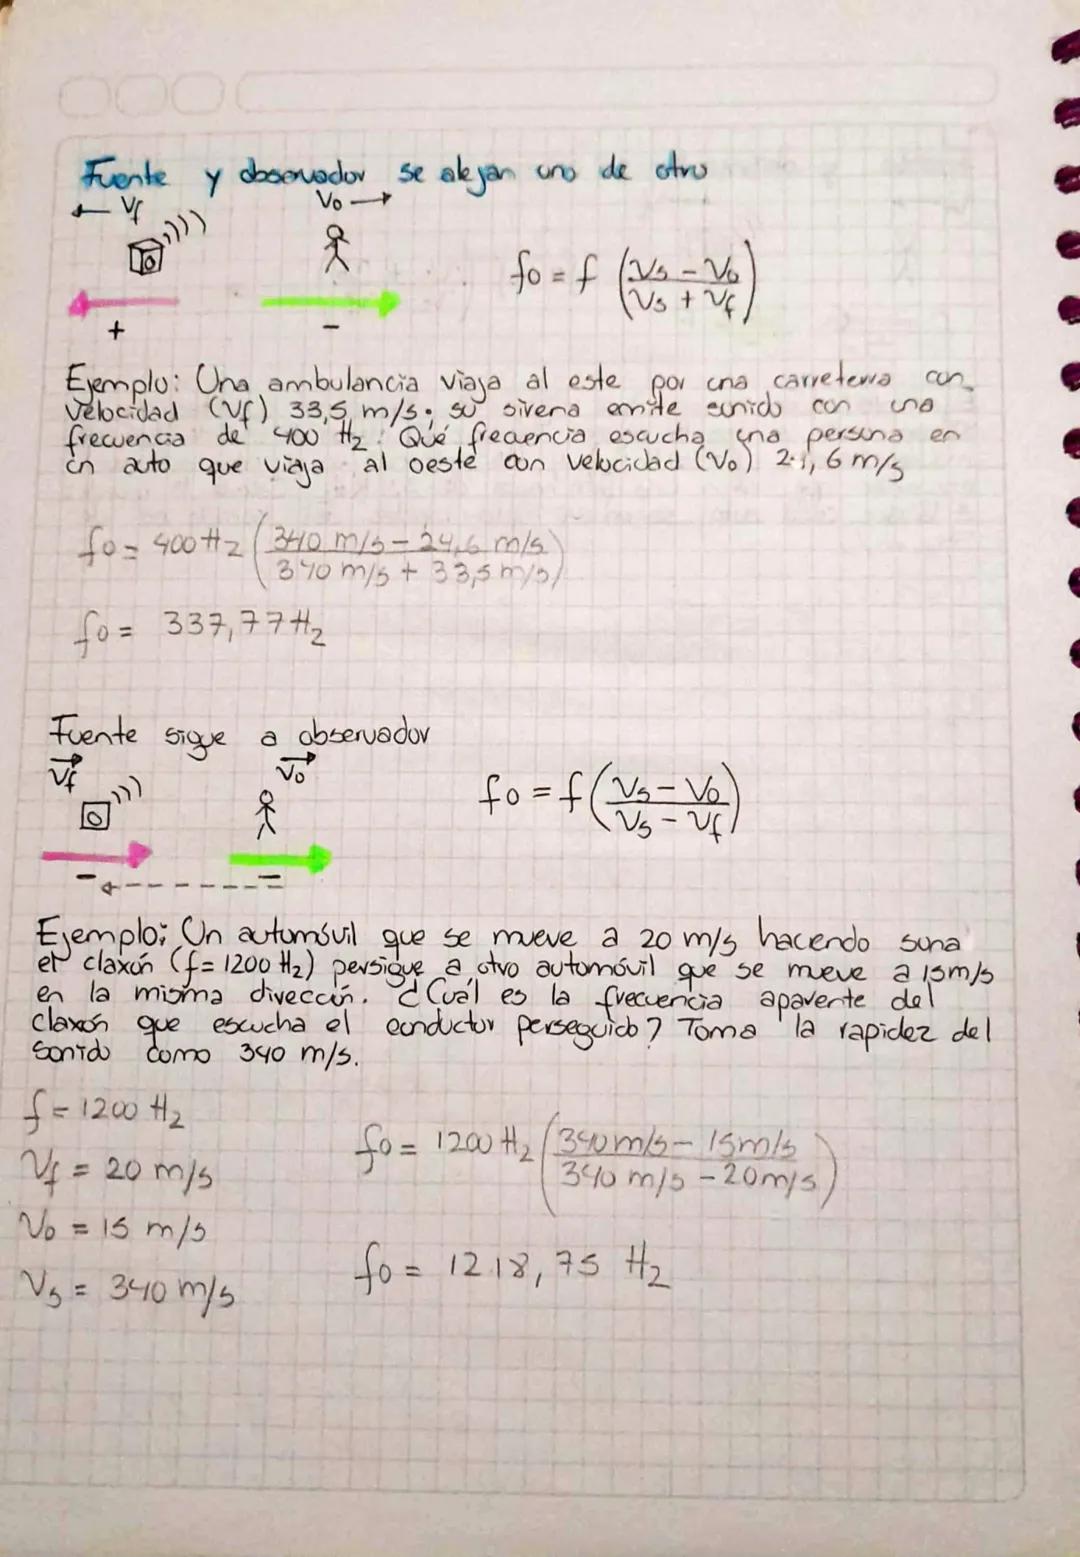 Fuente y observador se alejan uno de otro
← Vf Vo →
fo = f (Vs - Vo / Vs + Vf)
+ -
Ejemplo: Una ambulancia viaja al este por una carretera con
velocidad (Vf) 33,5 m/s. su sirena emite sonido con una
frecuencia de 400 Hz. Qué frecuencia escucha una persona en
un auto que viaja al oeste con velocidad (Vo) 24,6 m/s
fo = 400 Hz (340 m/s - 24,6 m/s / 340 m/s + 33,5 m/s)
fo = 337,77 Hz
Fuente sigue a observador
Vf Vo
fo = f (Vs - Vo / Vs - Vf)
- -
Ejemplo: Un automóvil que se mueve a 20 m/s haciendo sona
el claxón (f = 1200 Hz) persigue a otro automóvil que se mueve a 15 m/s
en la misma dirección. ¿Cuál es la frecuencia aparente del
claxón que escucha el conductor perseguido? Toma la rapidez del
sonido como 340 m/s.
f = 1200 Hz
fo = 1200 Hz (340 m/s - 15 m/s / 340 m/s - 20 m/s)
Vf = 20 m/s
Vo = 15 m/s
fo = 1218,75 Hz
Vs = 340 m/s